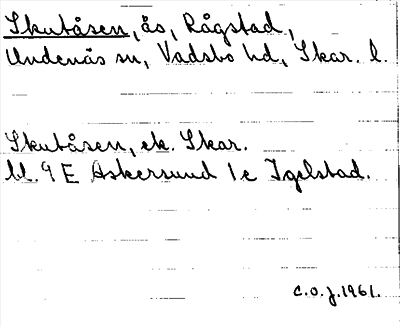 Skutåsen, ås, Rågstad,
Undenäs sn, Vadsbo hd, Skar. l.
Skutåsen, ek. Skar.
bl. 9 E Askersund 1c Igelstad.
C.O.J. 1961.